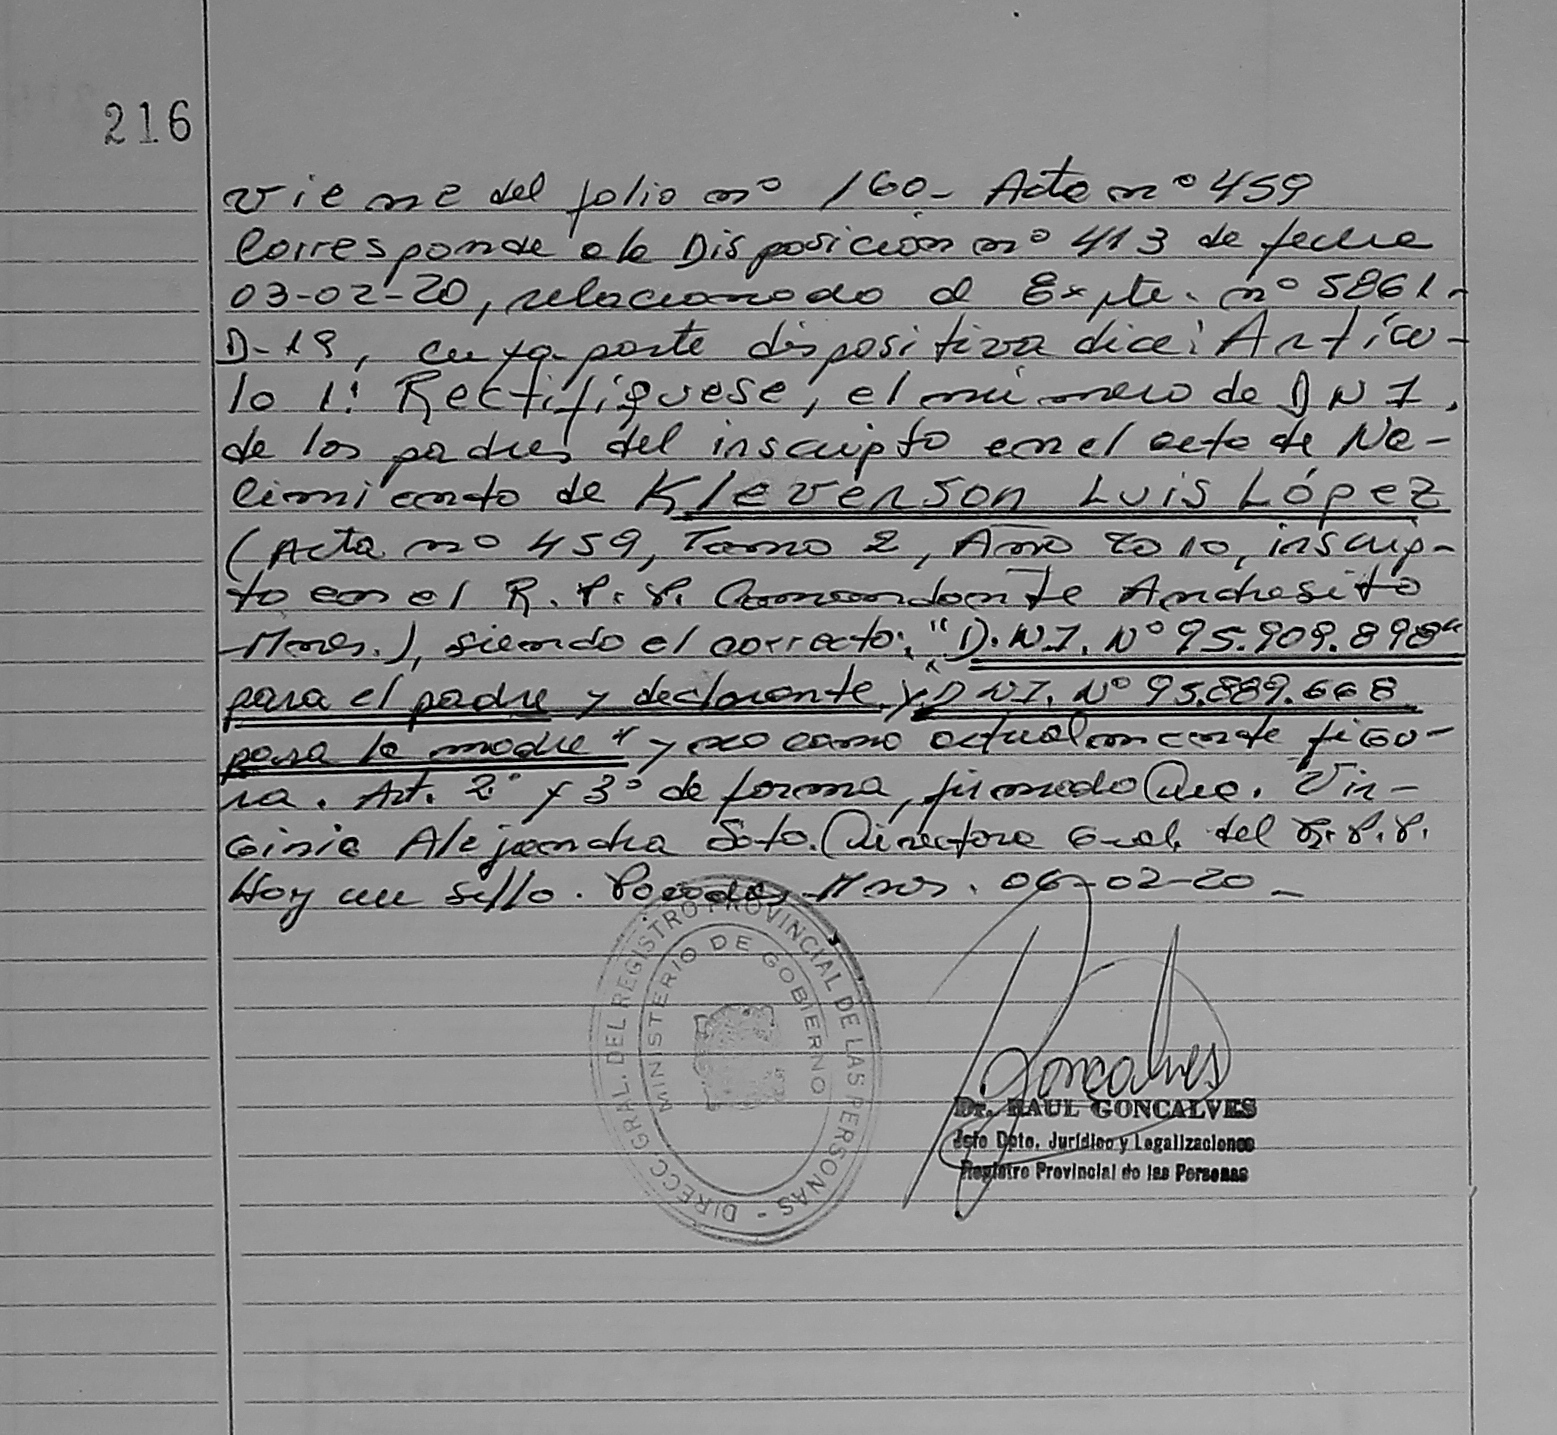 216
Viene del folio nº 160- Acta nº 459
Corresponde a la Disposición nº 413 de fecha
03-02-20, relacionado al Expte. nº 5861-
D-19, cuya parte dispositiva dice: Artícu-
lo 1: Rectifíquese, el número de DNI.
de los padres del inscripto en el acta de Na-
cimiento de Kleverson Luis López
(Acta nº 459, Tomo 2, Año 2010, inscrip-
to en el R.P.P. Comandante Andresito
Mnes.), siendo el correcto: "D.N.I. Nº 95.909.898"
para el padre y declarante y "DNI. Nº 95.889.668
para la madre" y no como actualmente figu-
ra. Art. 2º y 3º de forma, firmado Dra. Vir-
ginia Alejandra Soto. Directora Gral. del R.P.P.
Hay un sello. Posadas, Mnes. 06-02-20-
DIRECC. GRAL. DEL REGISTRO PROVINCIAL DE LAS PERSONAS -
MINISTERIO DE GOBIERNO
Goncalves
Dr. RAUL GONCALVES
Jefe Dpto. Jurídico y Legalizaciones
Registro Provincial de las Personas